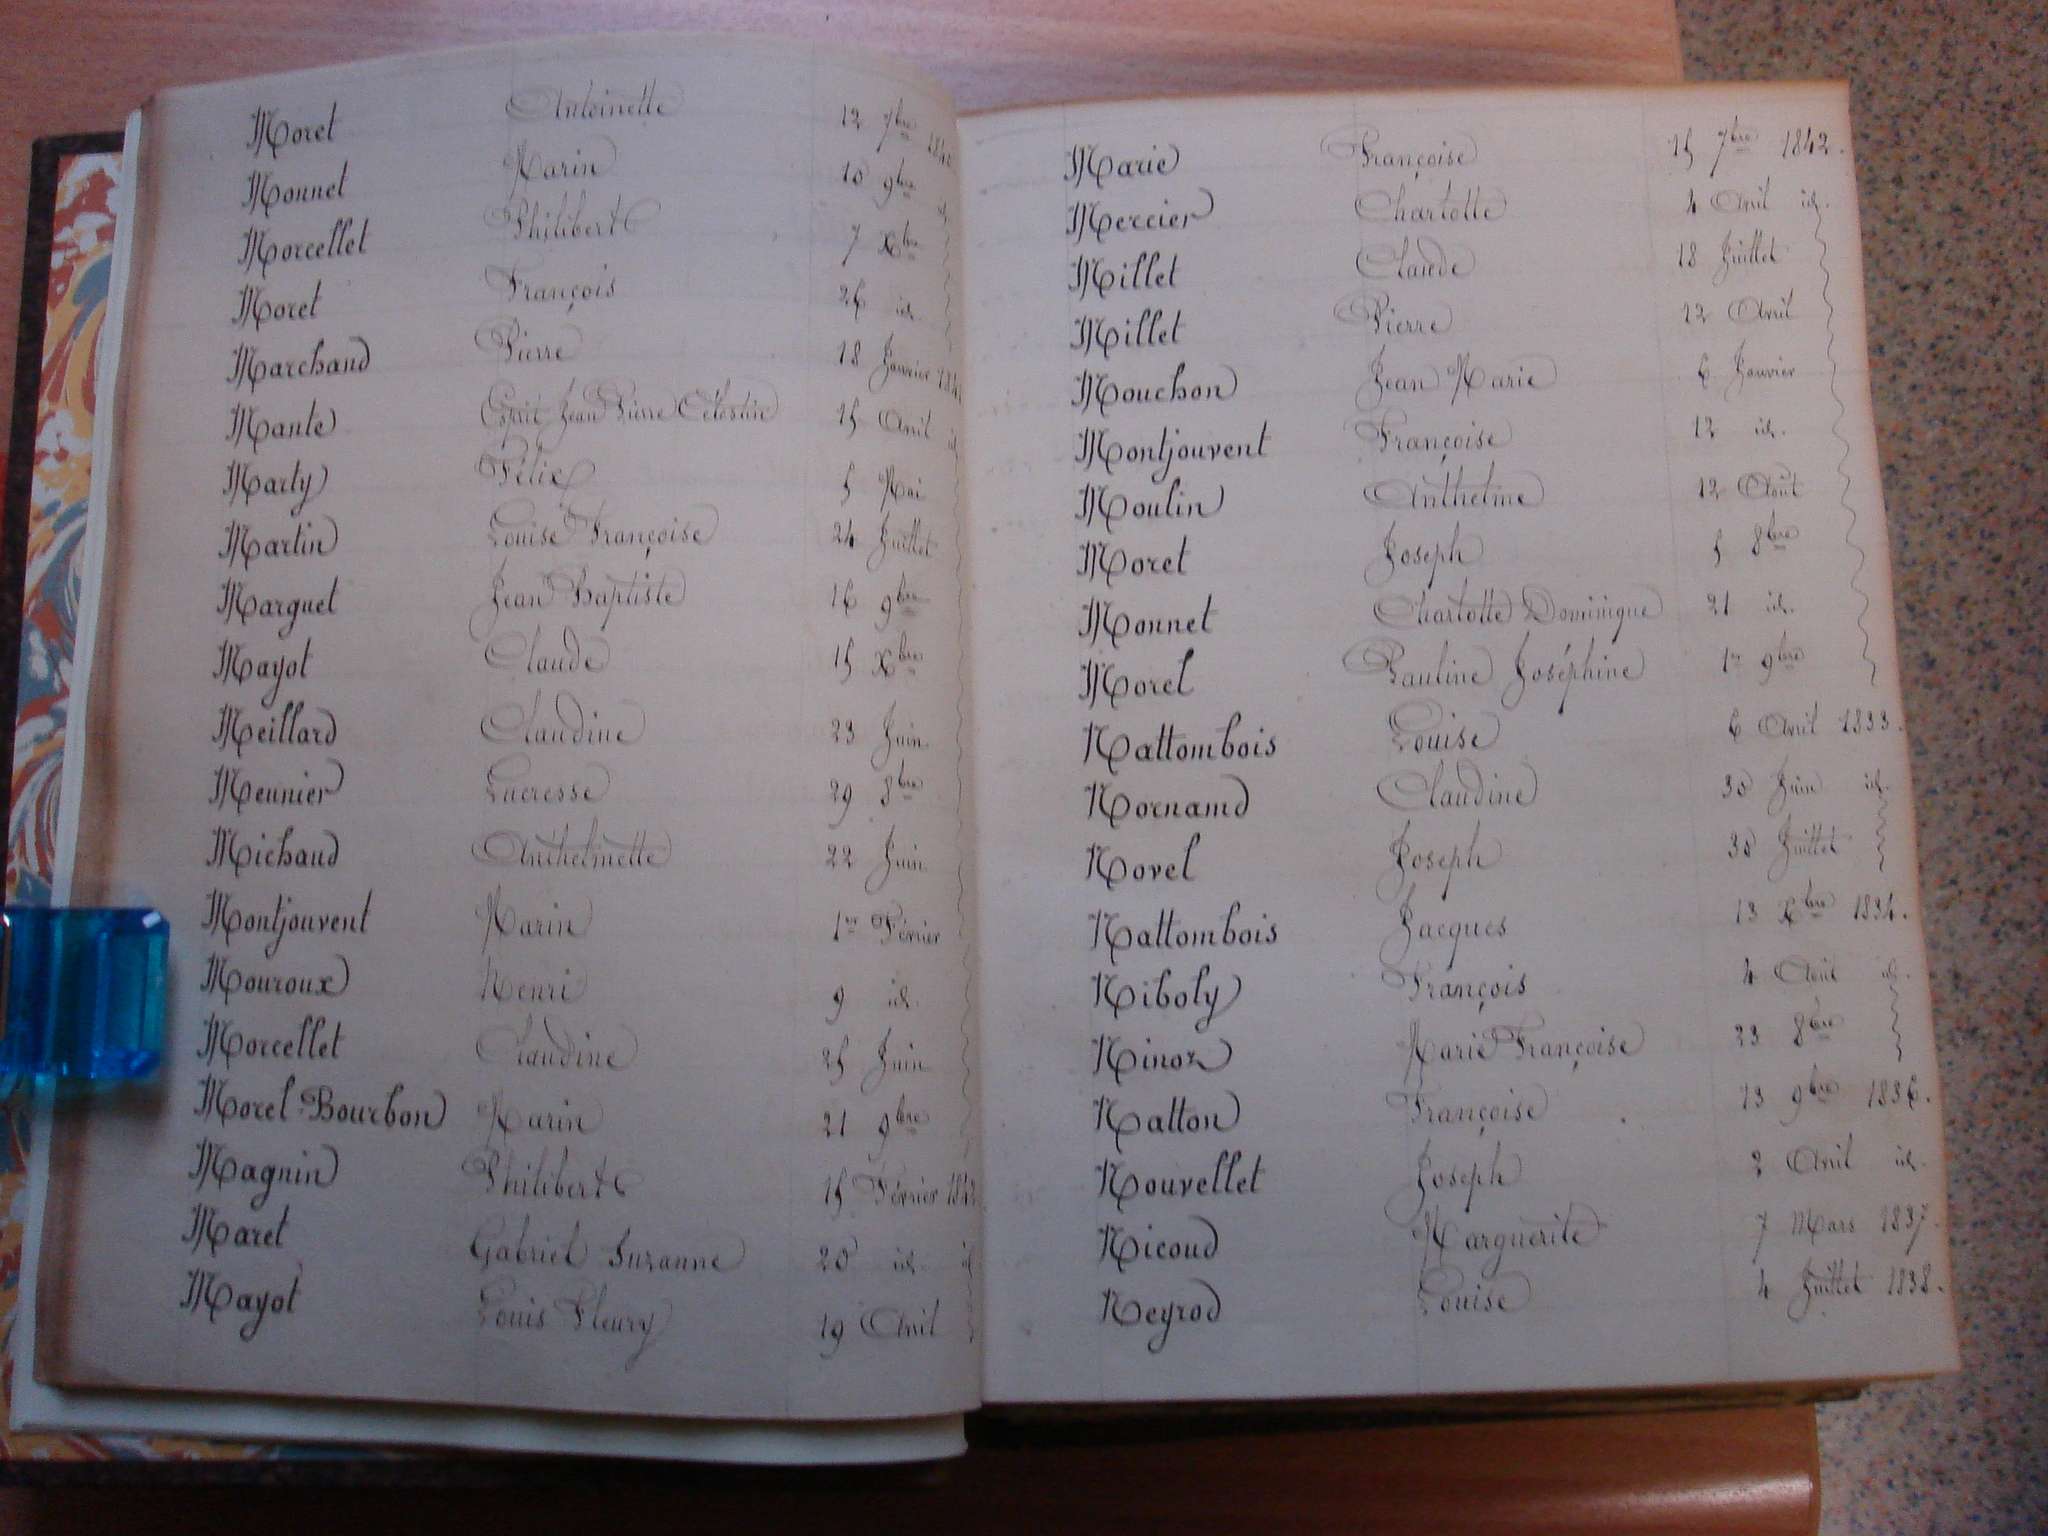 Moret Antoinette 12 7bre 1840
Monnet Marin 10 9bre id.
Morcellet Philibert 7 Xbre
Moret François 26 id.
Marchand Pierre 18 Janvier 1841
Mante Esprit Jean Pierre Célestin 15 Avril id
Marty Félix 5 Mai
Martin Louise Françoise 24 Juillet
Marguet Jean Baptiste 16 9bre
Mayot Claude 15 Xbre
Meillard Claudine 23 Juin
Meunier Lucresse 29 8bre
Michaud Anthelmette 22 Juin
Montjouvent Marin 1er Février
Mouroux Henri 9 id.
Morcellet Claudine 25 Juin
Morel-Bourbon Marin 21 9bre
Magnin Philibert 15 Février 1842
Maret Gabriel Suzanne 20 id. id
Mayot Louis Fleury 19 Avril
Marie Françoise 15 7bre 1842.
Mercier Charlotte 4 Avril id.
Millet Claude 18 Juillet
Millet Pierre 12 Avril
Mouchon Jean Marie 6 Janvier
Montjouvent Françoise 12 id.
Moulin Anthelme 12 Août
Moret Joseph 5 8bre
Monnet Charlotte Dominique 21 id.
Morel Pauline Joséphine 1er 9bre
Nattombois Louise 6 Avril 1833.
Nornamd Claudine 30 Juin id.
Novel Joseph 30 Juillet
Nattombois Jacques 13 Xbre 1834.
Niboly François 4 Août id.
Ninoz Marie Françoise 23 8bre
Natton Françoise 13 9bre 1836.
Nouvellet Joseph 2 Avril id.
Nicoud Marguerite 7 Mars 1837.
Neyrod Louise 4 Juillet 1838.